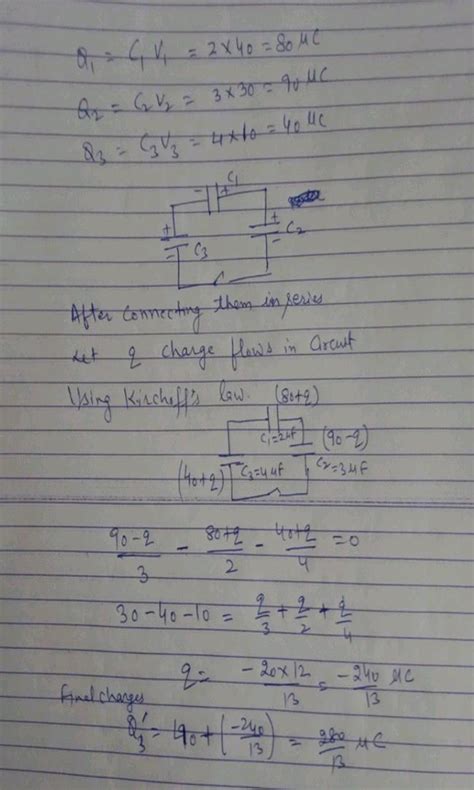 Q₁ = C₁V₁ = 2×40 = 80 μC
Q₂ = C₂V₂ = 3×30 = 90 μC
Q₃ = C₃V₃ = 4×10 = 40 μC
C₁
- +
+ C₃ -
+ C₂ -
After connecting them in series
Let q charge flows in Circuit
Using Kirchoff's law. (80+q)
C₁=2μF (90-q)
(40+q) C₃=4μF C₂=3μF
(90-q)/3 - (80+q)/2 - (40+q)/4 = 0
30-40-10 = q/3 + q/2 + q/4
q = -20×12/13 = -240/13 μC
Final charges
Q₃' = 40 + (-240/13) = 280/13 μC